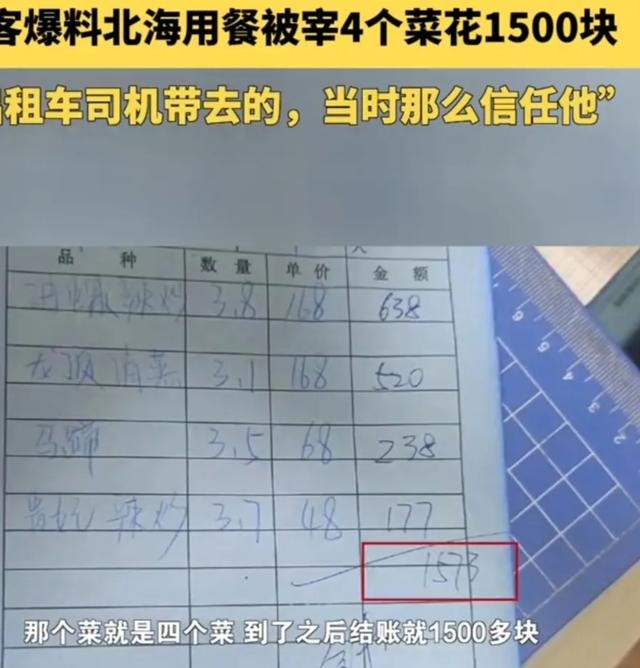 客爆料北海用餐被宰4个菜花1500块
租车司机带去的，当时那么信任他”
品 种 数量 单价 金额
辣炒 3.8 168 638
龙 3.1 168 520
马蹄 3.5 68 238
贵妃 辣炒 3.7 48 177
1573
6
5
4
3
2
那个菜就是四个菜 到了之后结账就1500多块